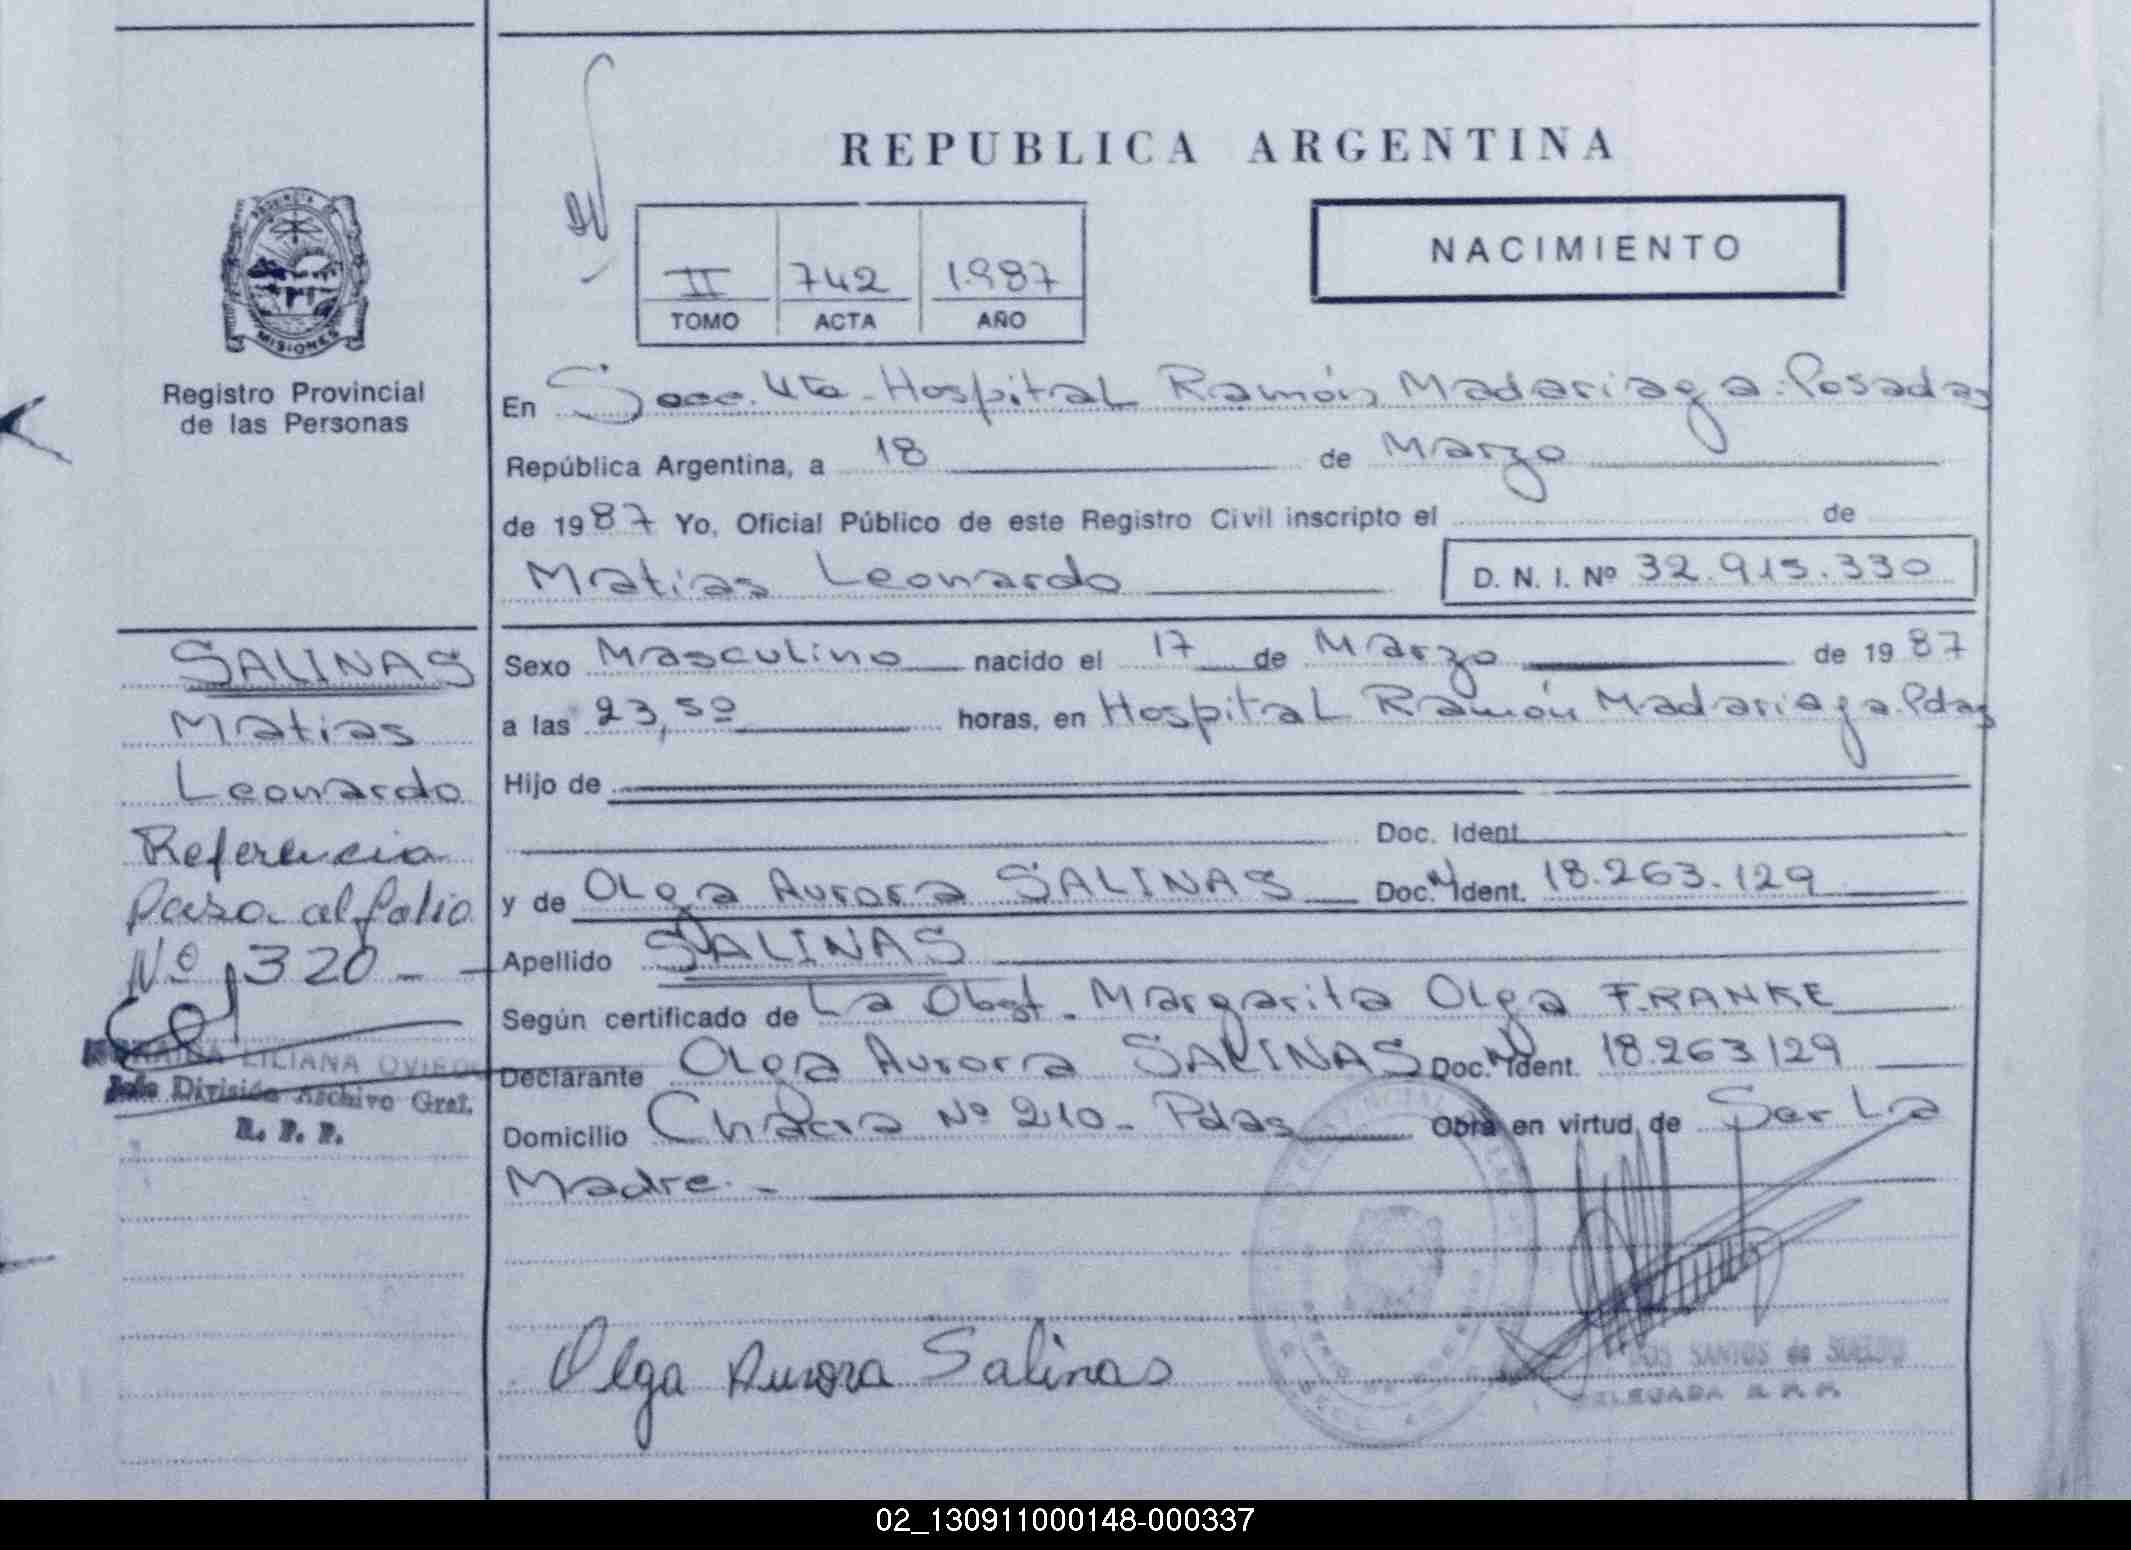 REPUBLICA ARGENTINA
NACIMIENTO
II 742 1.987
TOMO ACTA AÑO
MISIONES
Registro Provincial
de las Personas
En Secc. 4ta. Hospital Ramón Madariaga. Posadas
República Argentina, a 18 de Marzo
de 1987 Yo, Oficial Público de este Registro Civil inscripto el de
Matias Leonardo
D. N. I. Nº 32.915.330
SALINAS
Matias
Leonardo
Referencia
Paso al folio
Nº 320 -
LILIANA OVIEDO
Jefe División Archivo Gral.
R. P. P.
Sexo Masculino nacido el 17 de Marzo de 1987
a las 23,50 horas, en Hospital Ramón Madariaga. Pdas
Hijo de
Doc. Ident.
y de Olga Aurora SALINAS Doc. Ident. 18.263.129
Apellido SALINAS
Según certificado de La Obst. Margarita Olga FRANKE
Declarante Olga Aurora SALINAS Doc. Ident. 18.263129
Domicilio Chacra Nº 210 - Pdas Obra en virtud de Ser La
Madre. -
Olga Aurora Salinas
DOS SANTOS de SUELDO
DELEGADA R. P. P.
02_130911000148-000337